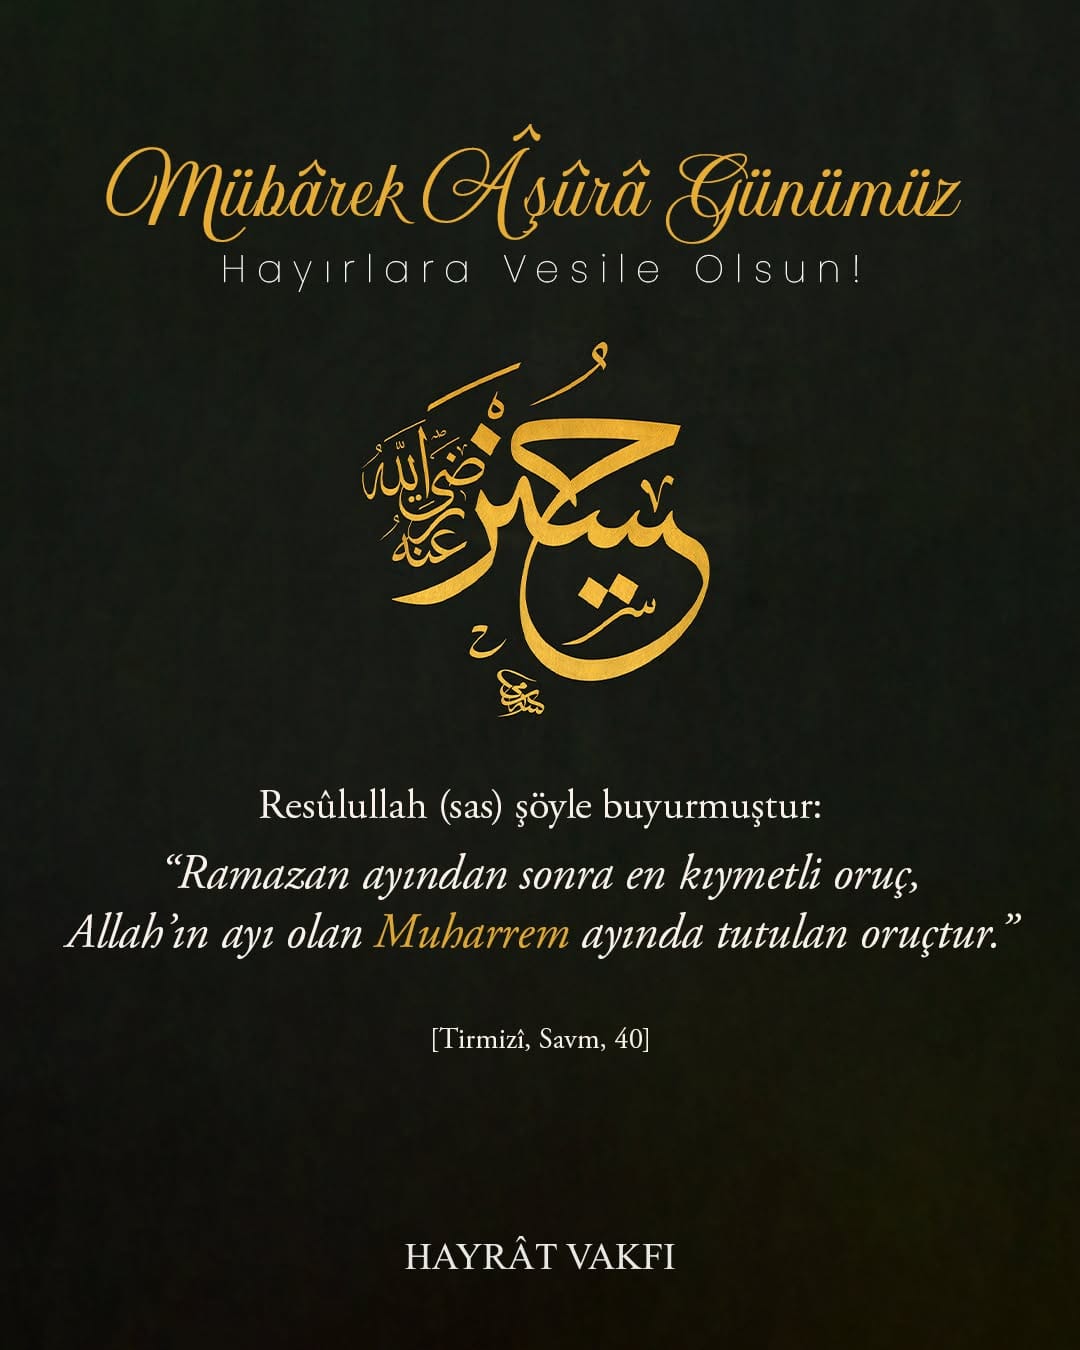 Mübârek Âşûrâ Günümüz
Hayırlara Vesile Olsun!
حسين
رضي الله عنه
Resûlullah (sas) şöyle buyurmuştur:
“Ramazan ayından sonra en kıymetli oruç,
Allah’ın ayı olan Muharrem ayında tutulan oruçtur.”
[Tirmizî, Savm, 40]
HAYRÂT VAKFI